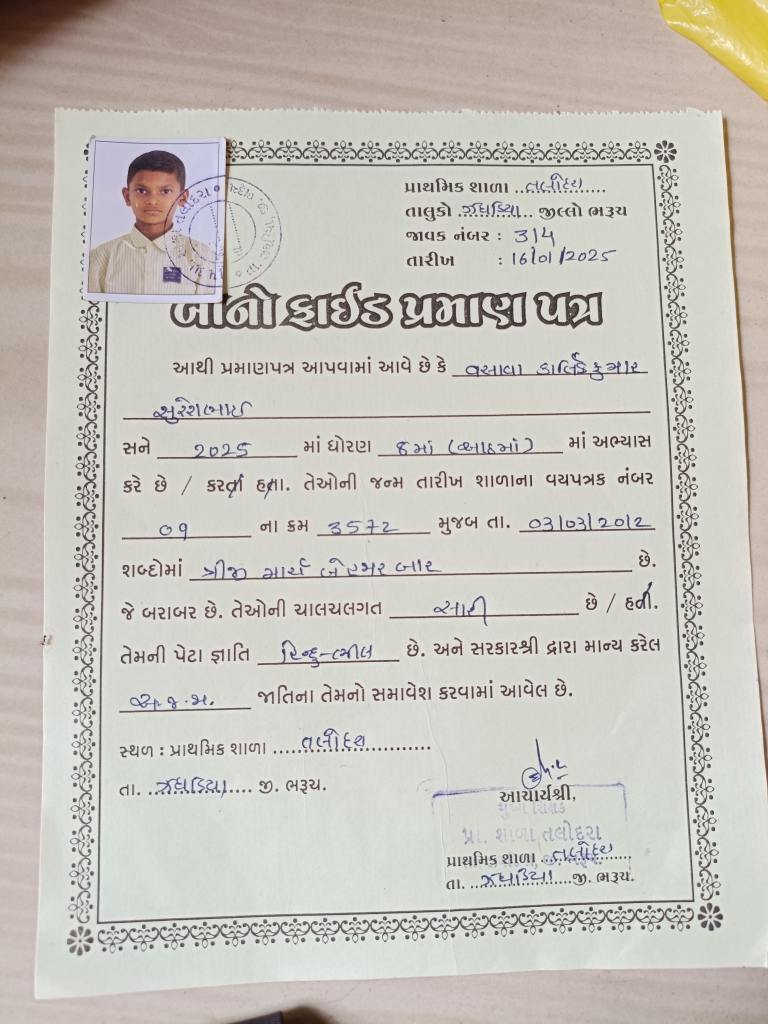 પ્રાથમિક શાળા ..તલોદરા.....
તાલુકો .ઝઘડિયા... જીલ્લો ભરૂચ
જાવક નંબર : 314
તારીખ : 16/01/2025
બોનો ફાઈડ પ્રમાણ પત્ર
આથી પ્રમાણપત્ર આપવામાં આવે છે કે વસાવા કાર્તિકકુમાર
સુરેશભાઈ
સને 2025 માં ધોરણ 8માં (આઠમાં) માં અભ્યાસ
કરે છે / કરતાં હતા. તેઓની જન્મ તારીખ શાળાના વયપત્રક નંબર
09 ના ક્રમ 3572 મુજબ તા. 03/03/2012
શબ્દોમાં ત્રીજી માર્ચ બેહજાર બાર છે.
જે બરાબર છે. તેઓની ચાલચલગત સારી છે / હતી.
તેમની પેટા જ્ઞાતિ હિન્દુ-ભીલ છે. અને સરકારશ્રી દ્રારા માન્ય કરેલ
અ.જ.જા. જાતિના તેમનો સમાવેશ કરવામાં આવેલ છે.
સ્થળ : પ્રાથમિક શાળા ....તલોદરા..............
તા. ..ઝઘડિયા.... જી. ભરૂચ.
આચાર્યશ્રી,
મુખ્ય શિક્ષક
પ્રા. શાળા તલોદરા
પ્રાથમિક શાળા ..તલોદરા...
તા. ...ઝઘડિયા...જી. ભરૂચ.